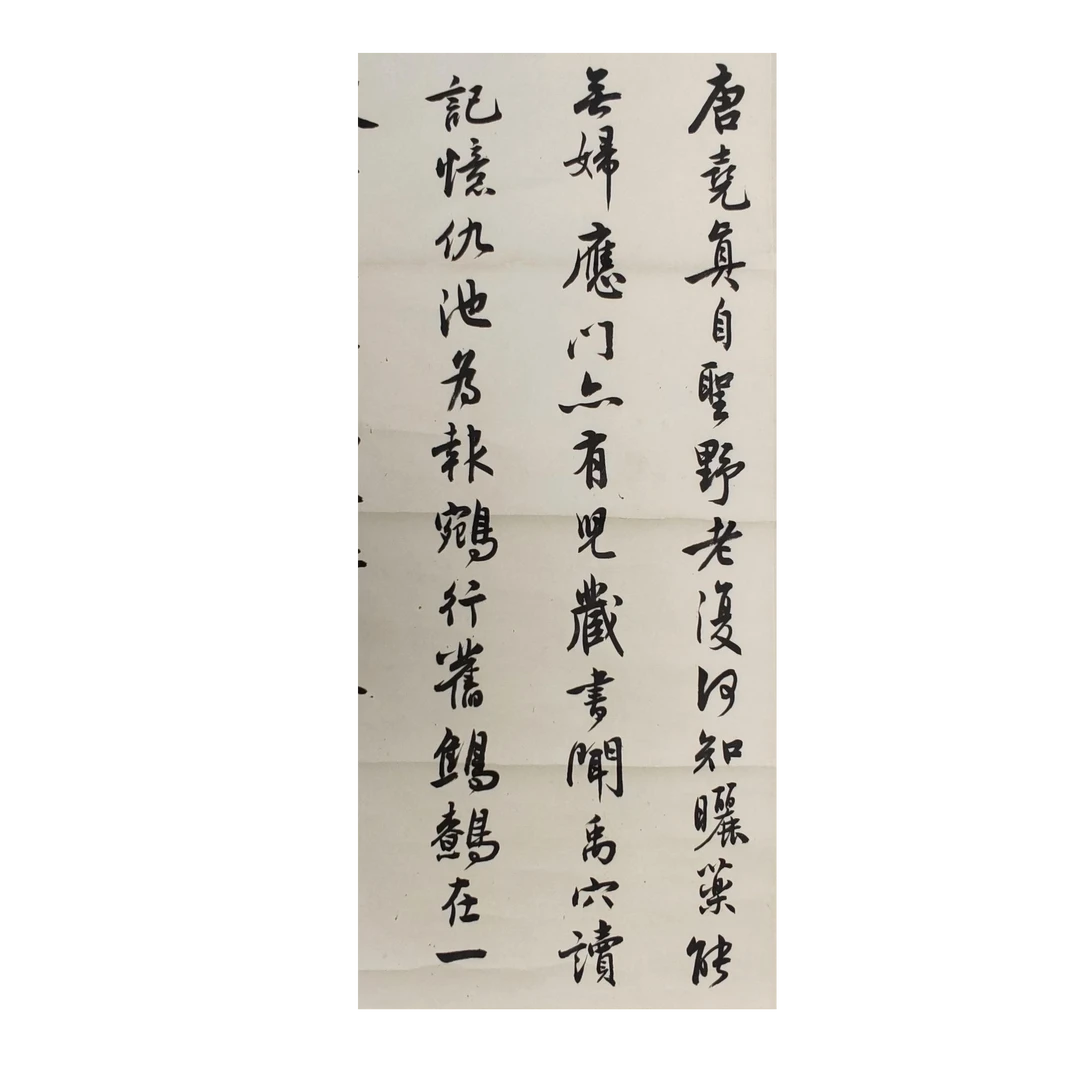 唐堯真自聖野老復何知曬藥能
無婦應門亦有兒藏書聞禹穴讀
記憶仇池為報鵷行舊鷦鷯在一